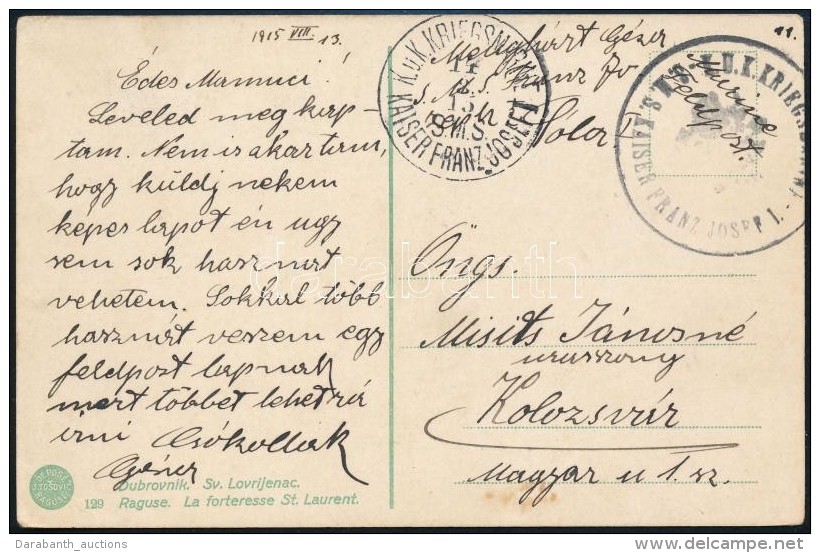 1915 VIII 13.
Édes Mamuci!
Leveled megkap-
tam. Nem is akartam,
hogy küldj nekem
képes lapot én ugy
sem sok hasznát
vehetem. Sokkal több
hasznát veszem egy
feldpost lapnak
mert többet lehet rá
irni Csókollak
Géza
DEPOSÉ
RAGUSE
129
Dubrovnik. Sv. Lovrijenac.
Raguse. La forteresse St. Laurent.
K.u.K. KRIEGSMARINE
S.M.S.
KAISER FRANZ JOSEF I
Géza
S.M.S. Franz Jo
Pola
Marine
Feldpost.
11.
S.M.S. K.U.K. KRIEGSMARINE
KAISER FRANZ JOSEF I.
Öngs.
Misits Jánosné
urasszony
Kolozsvár
Magyar u 1. sz.
darabanth
Darabanth_auctions
delcampe.net